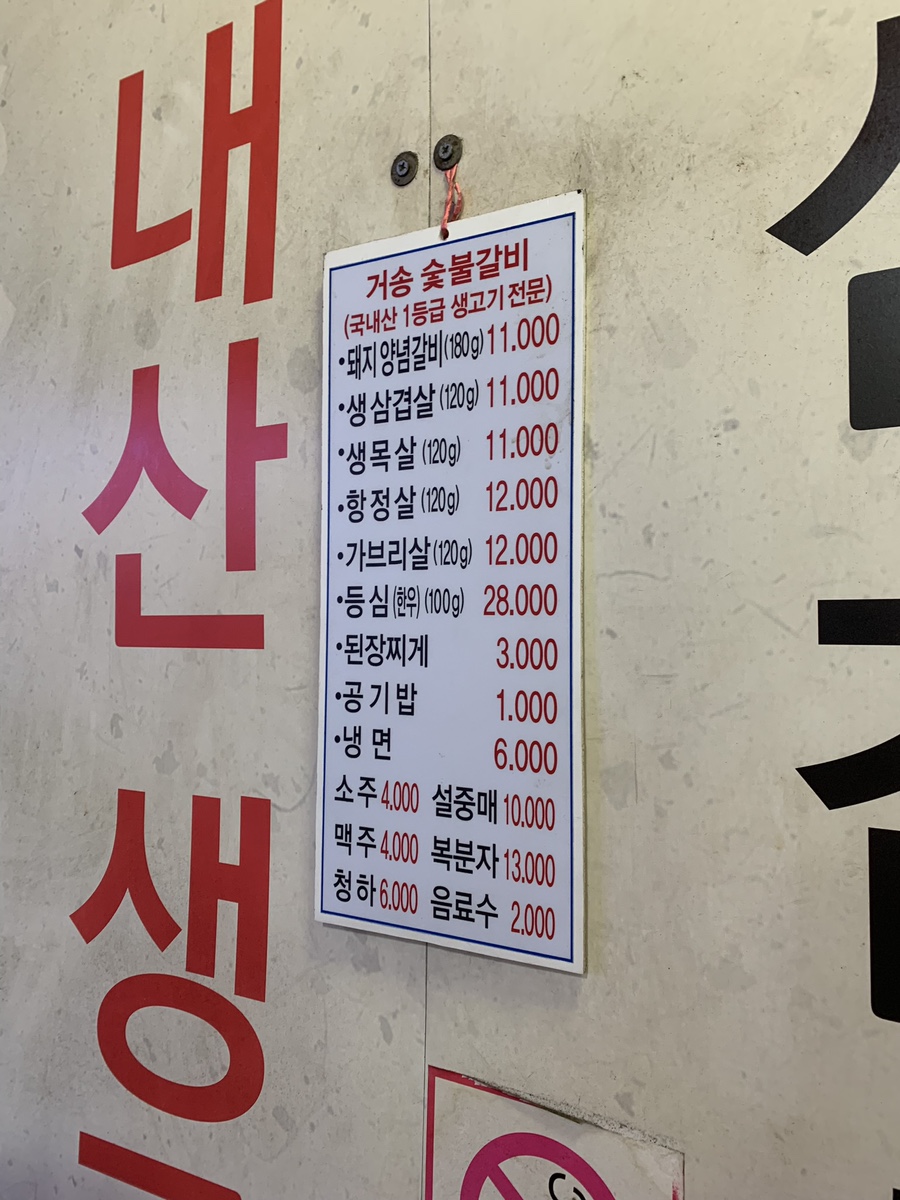 내산 생
거송 숯불갈비
(국내산 1등급 생고기 전문)
•돼지 양념갈비(180g) 11.000
•생삼겹살 (120g) 11.000
•생목살 (120g) 11.000
•항정살 (120g) 12.000
•가브리살 (120g) 12.000
•등심(한우) (100g) 28.000
•된장찌게 3.000
•공기밥 1.000
•냉면 6.000
소주 4.000 설중매 10.000
맥주 4.000 복분자 13.000
청하 6.000 음료수 2.000